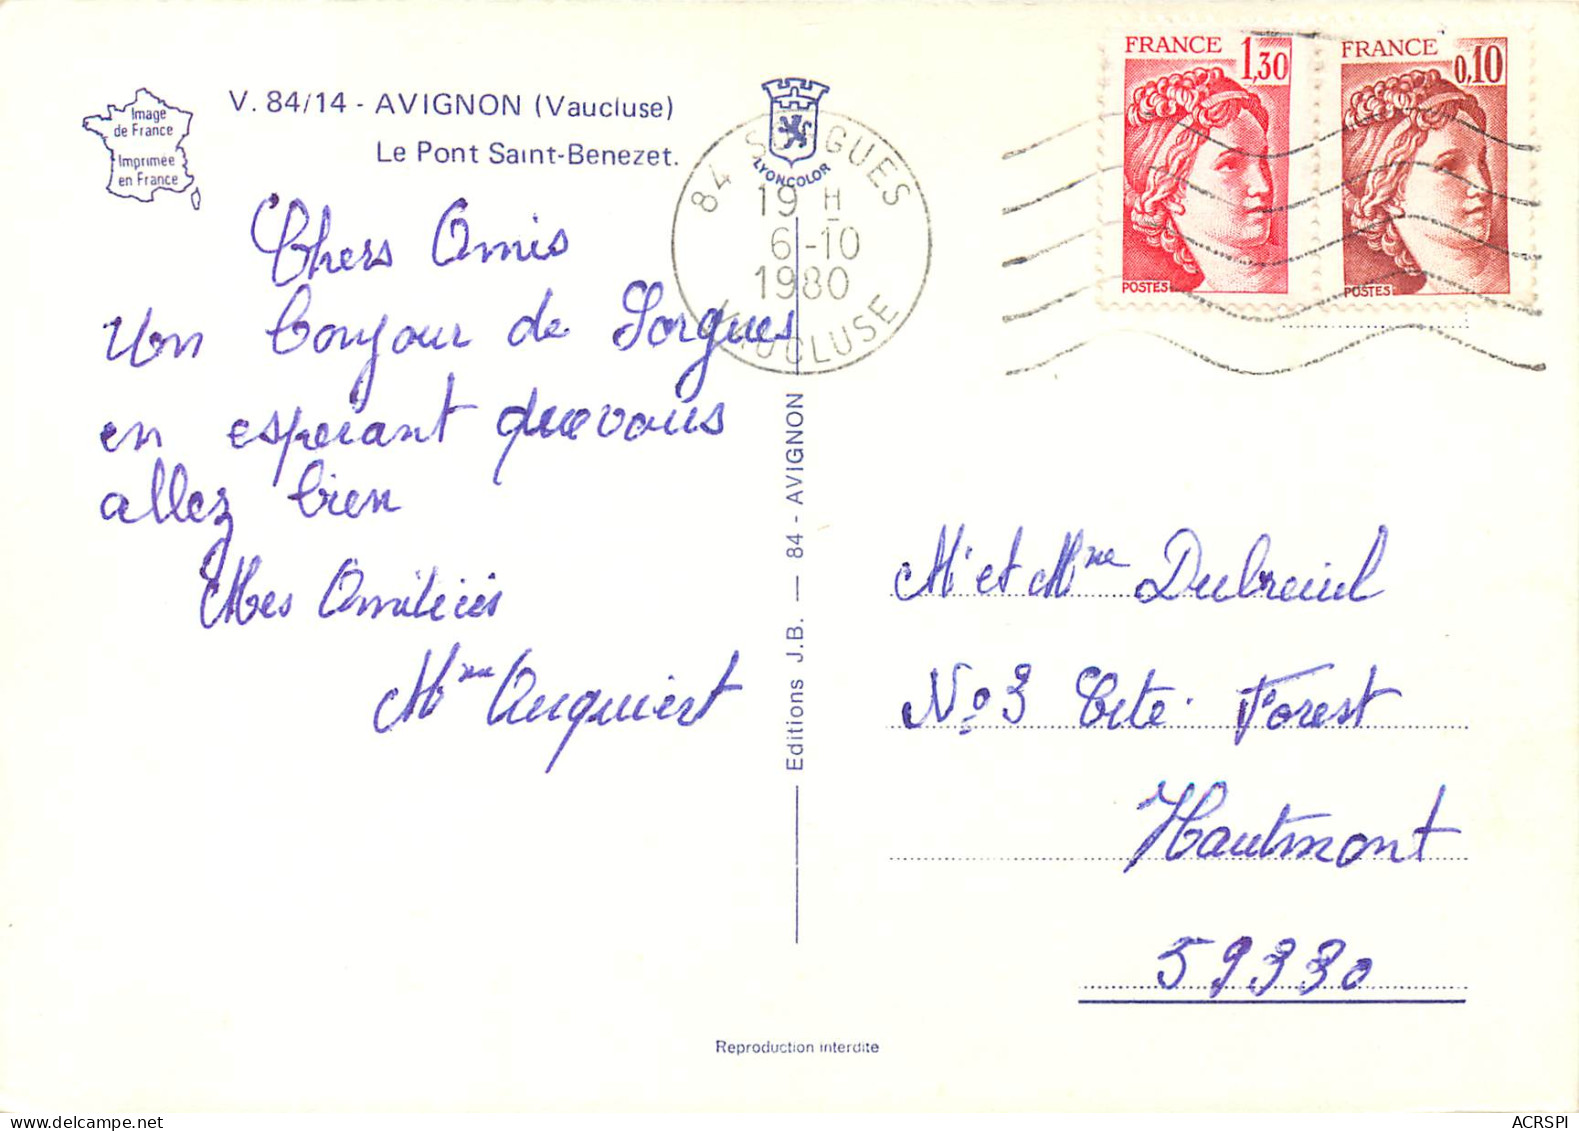 Image
de France
Imprimée
en France
V. 84/14 - AVIGNON (Vaucluse)
Le Pont Saint-Benezet.
LYONCOLOR
84 SORGUES
19 H
6-10
1980
VAUCLUSE
FRANCE 1,30
POSTES
FRANCE 0,10
POSTES
Chers Amis
Un bonjour de Sorgues
en esperant que vous
allez bien
Mes Amitiés
Mme Anquiert
Editions J.B. — 84 - AVIGNON
Mr et Mme Dubreuil
No 3 Cité Forest
Hautmont
59330
Reproduction interdite
ACRSPI